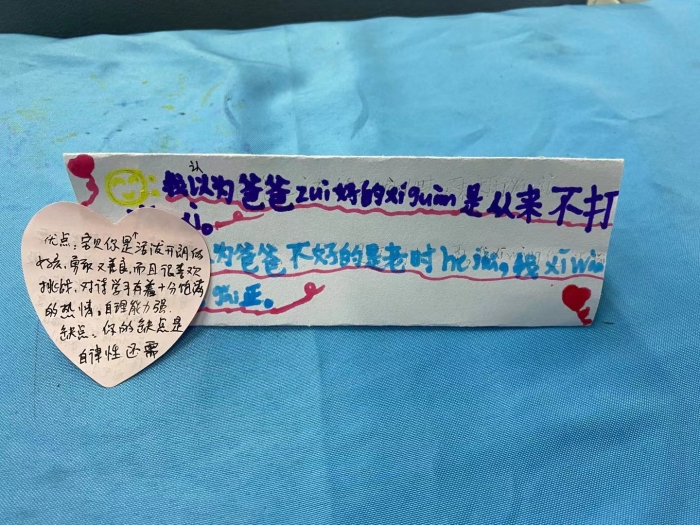 认
:我以为爸爸zui好的xiguan是从来不打
xi。
为爸爸不好的是老时he jiu,我xiwan
gai正。
优点:宝贝你是个活泼开朗的
女孩,勇敢又善良,而且很喜欢
挑战,对待学习有着十分饱满
的热情,自理能力强.
缺点:你的缺点是
自律性还需